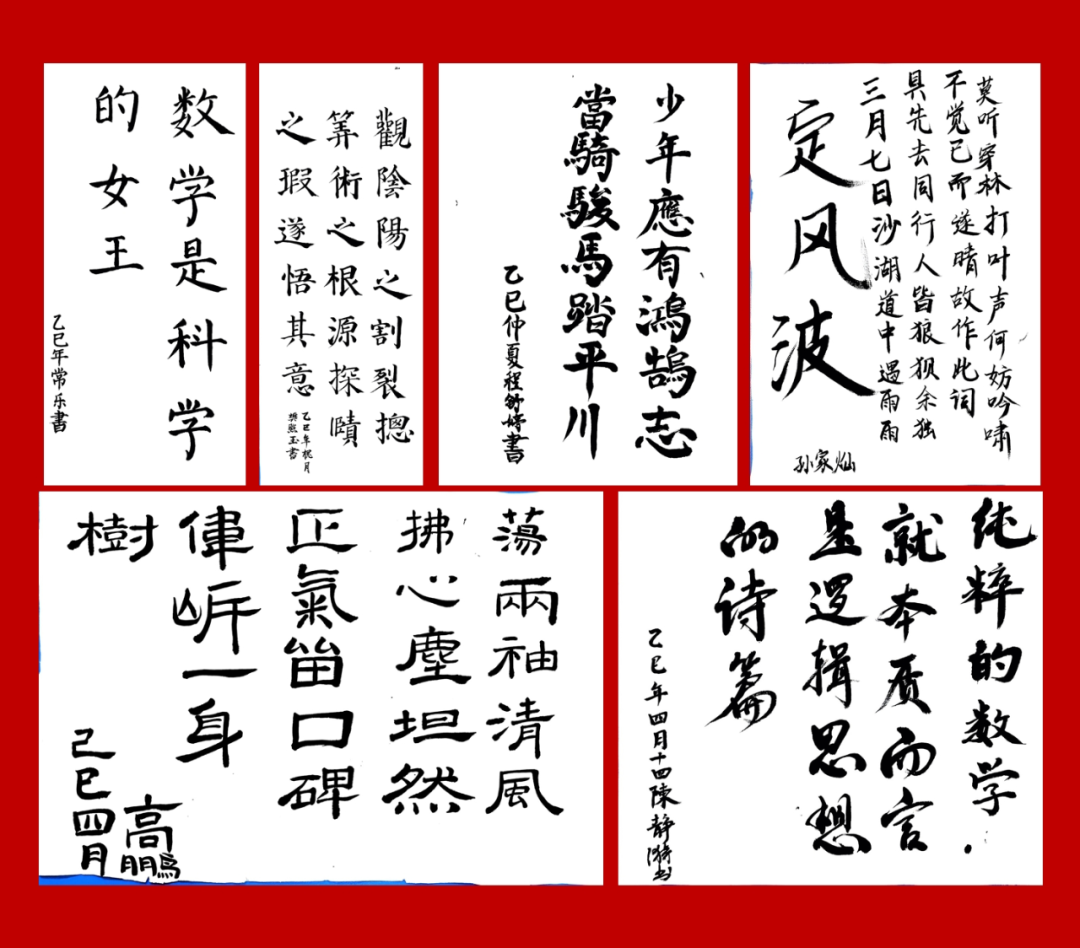 数学是科学
的女王
乙巳年常乐書
觀陰陽之割裂摠
筭術之根源探賾
之瑕遂悟其意
乙巳年桃月
玉書
少年應有鴻鵠志
當騎駿馬踏平川
乙巳仲夏程舒婷書
定风波
三月七日沙湖道中遇雨雨
具先去同行人皆狼狈余独
不觉已而遂晴故作此词
莫听穿林打叶声何妨吟啸
孙家灿
蕩兩袖清風
拂心塵坦然
正氣留口碑
偉岸一身
樹
己巳四月
高鵬
纯粹的数学.
就本质而言
是逻辑思想
的诗篇
乙巳年四月十四陳静书